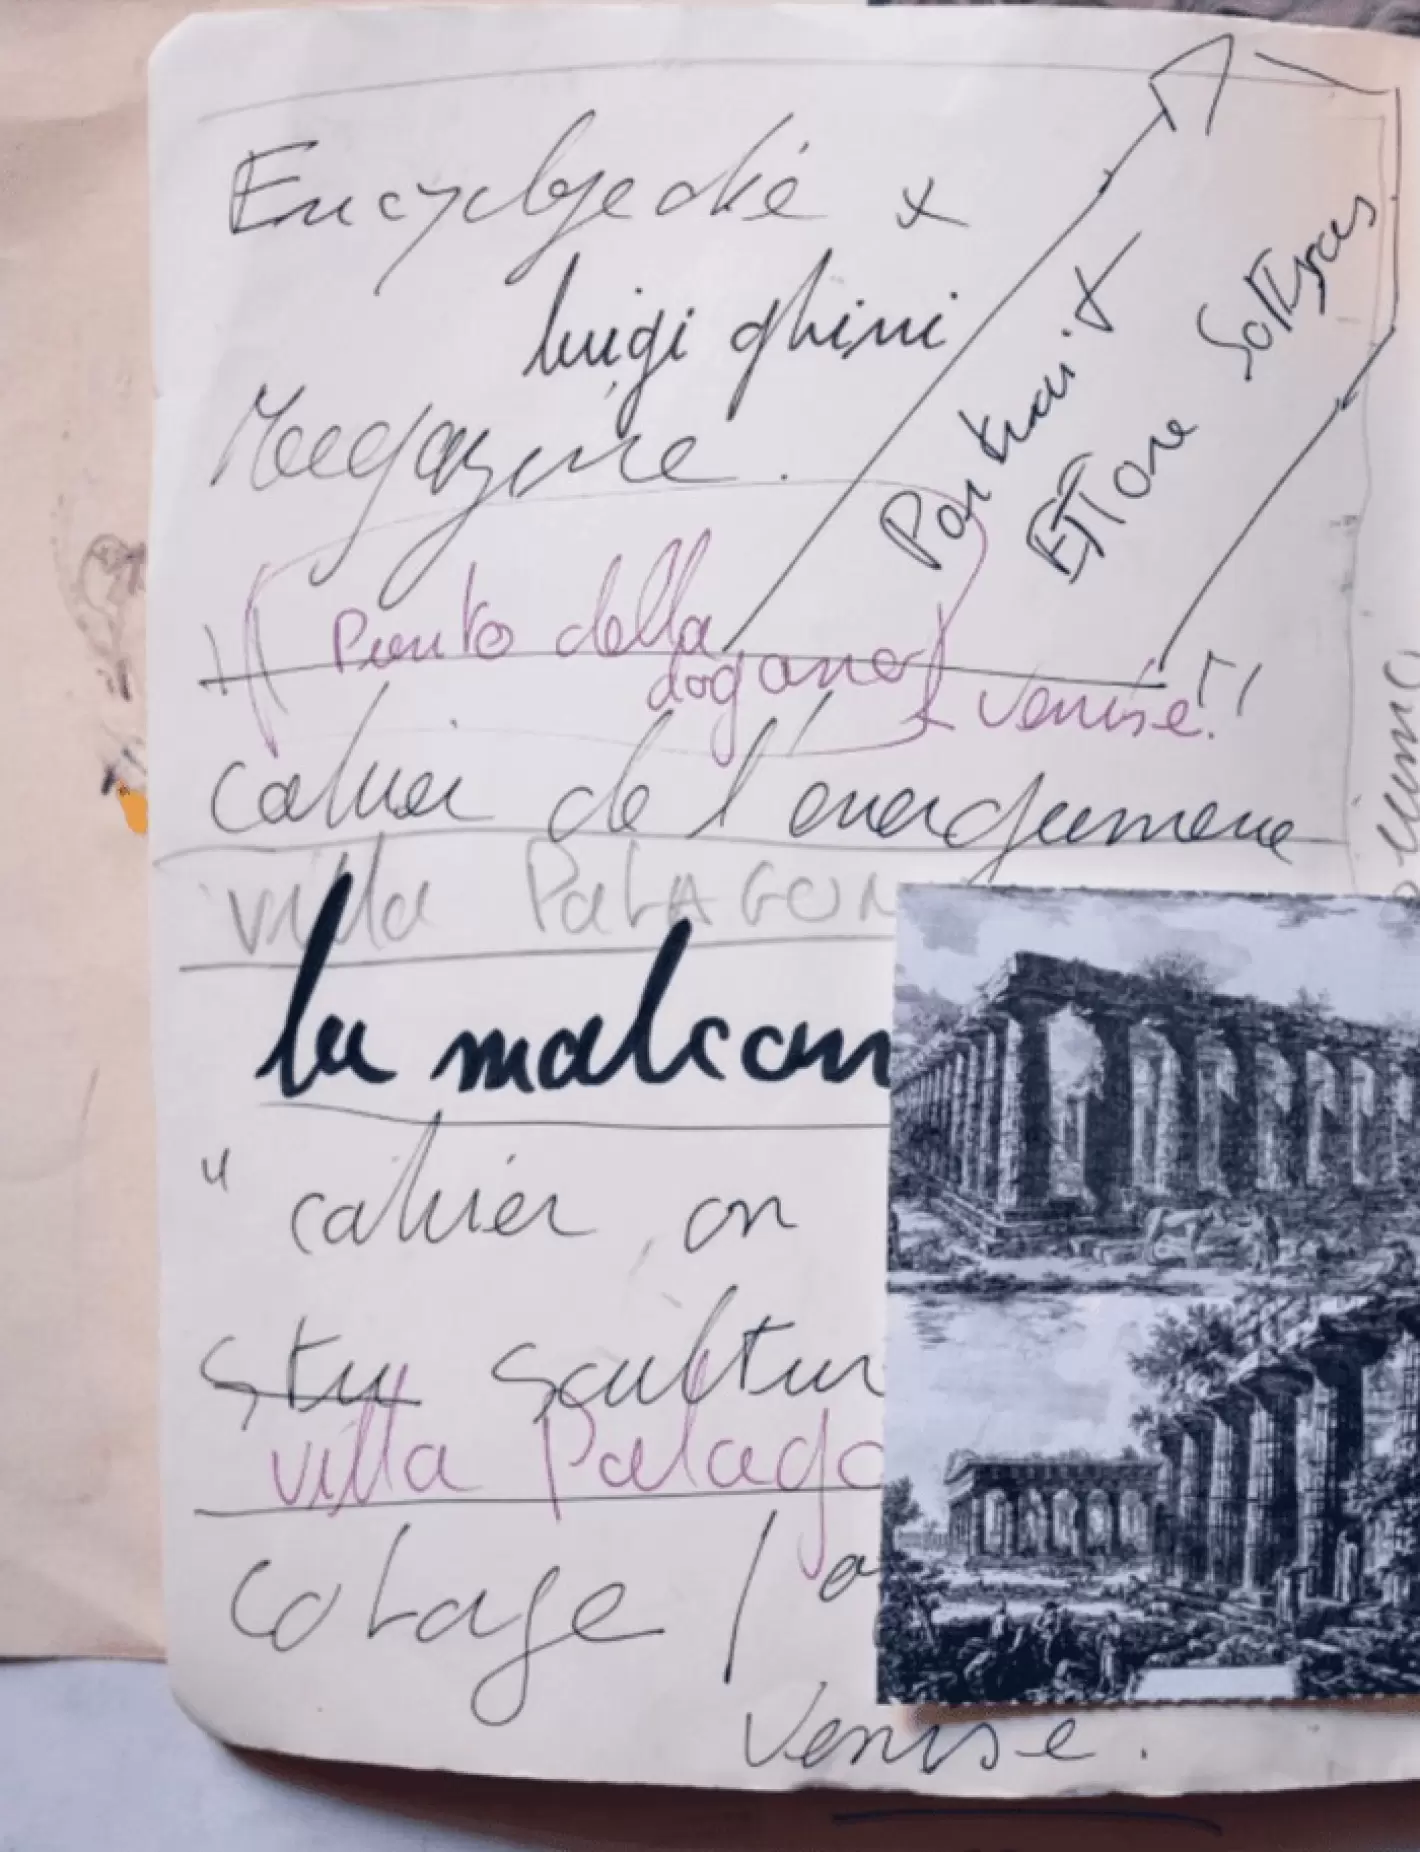 Encyclopedie x
luigi ghirri
Magazine.
Portrait
Ettore Sottsas
Punto della
dogana
Venise!!
cahier de l'energumene
villa PALAGON
la malcon
" cahier on
sculptur
villa Palago
Venise.